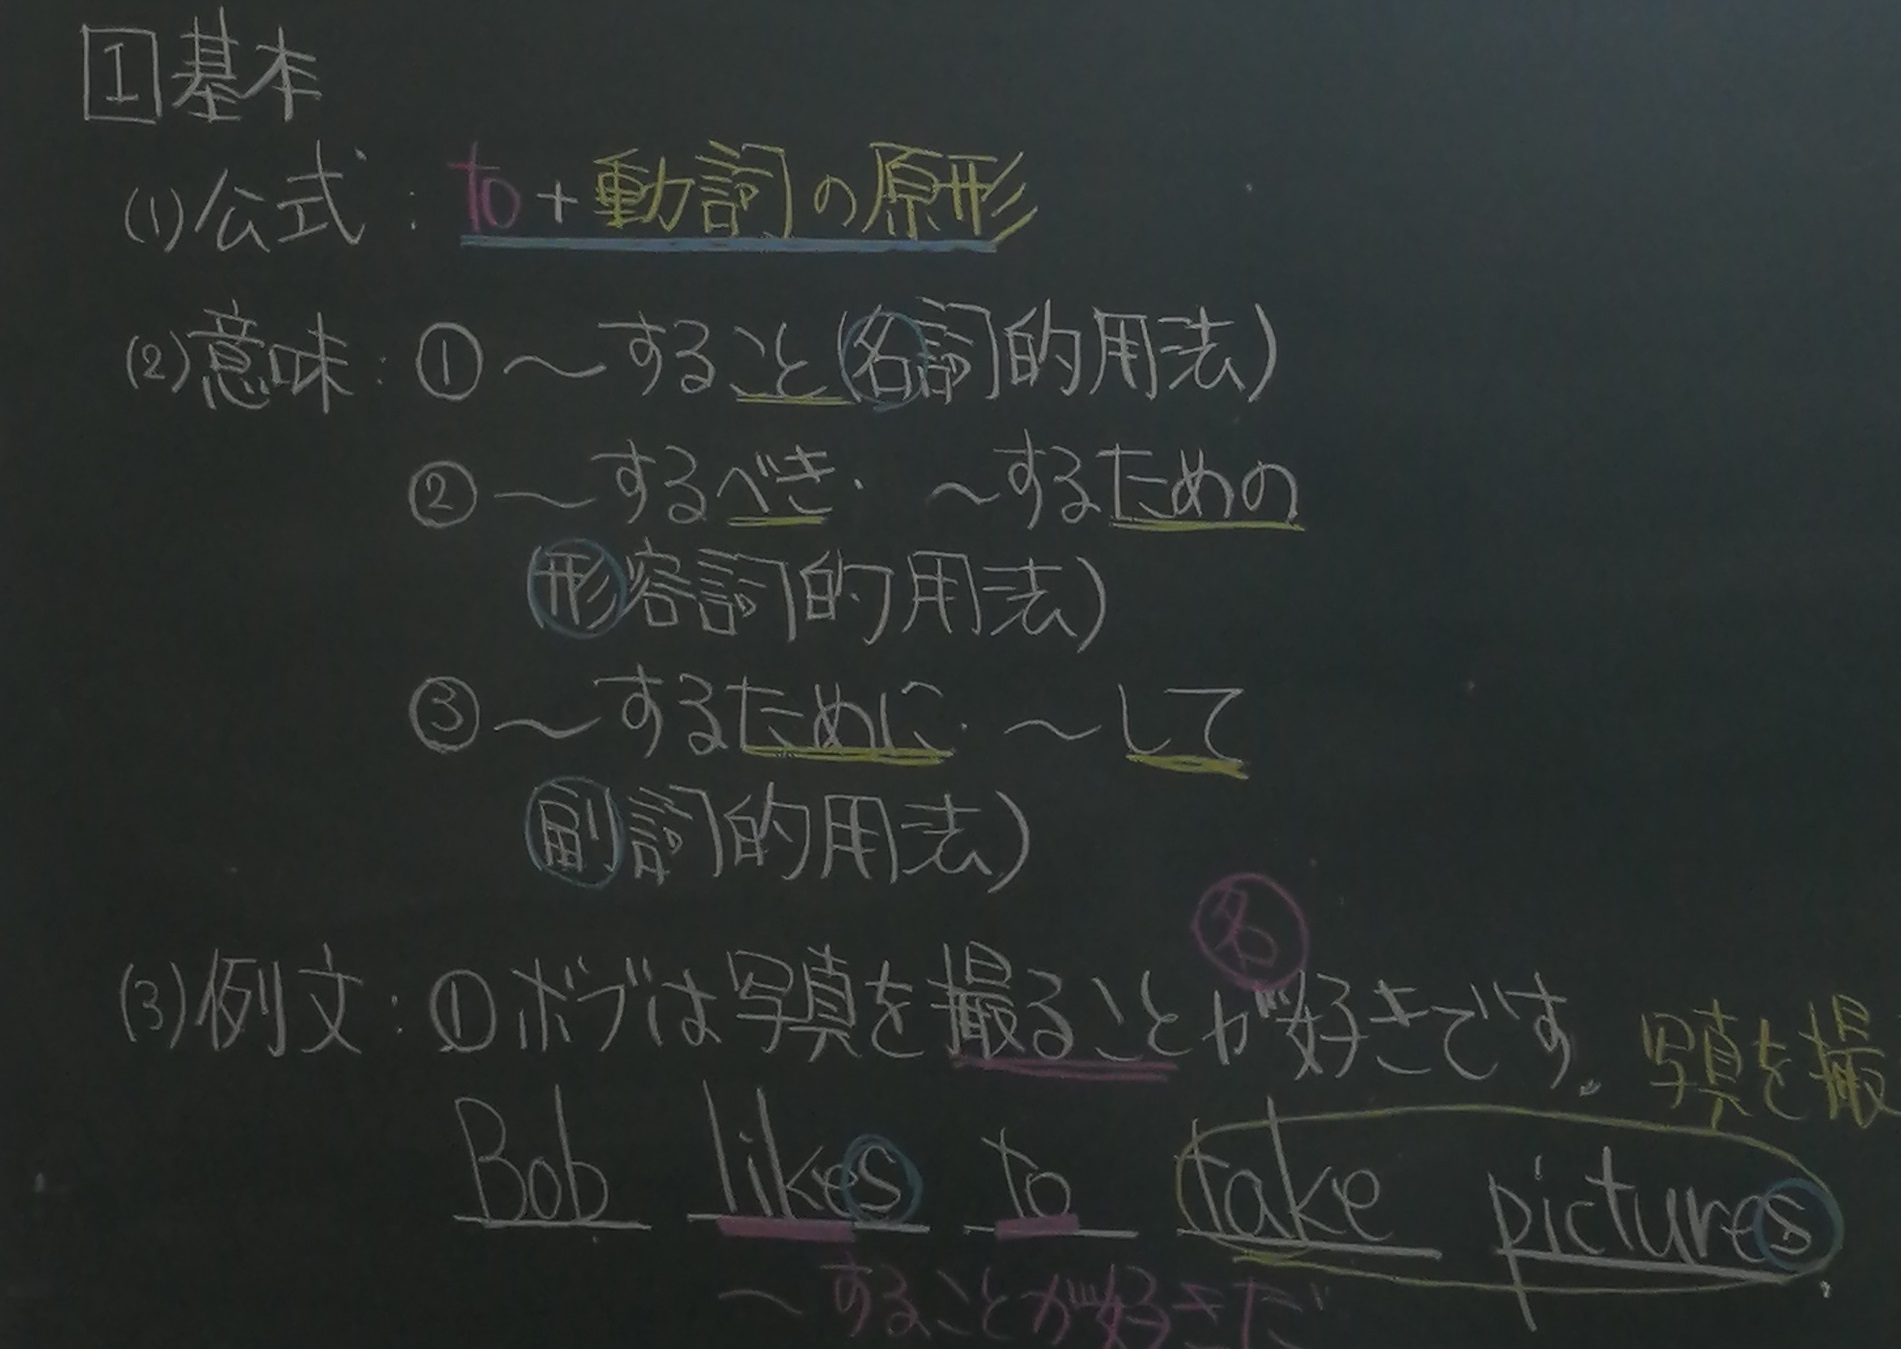 I 基本
(1)公式:to+動詞の原形
(2)意味:①〜すること(名詞的用法)
②〜するべき・〜するための
(形容詞的用法)
③〜するために・〜して
(副詞的用法)
名
(3)例文:①ボブは写真を撮ることが好きです。
写真を撮
Bob likes to take pictures.
〜することが好きだ